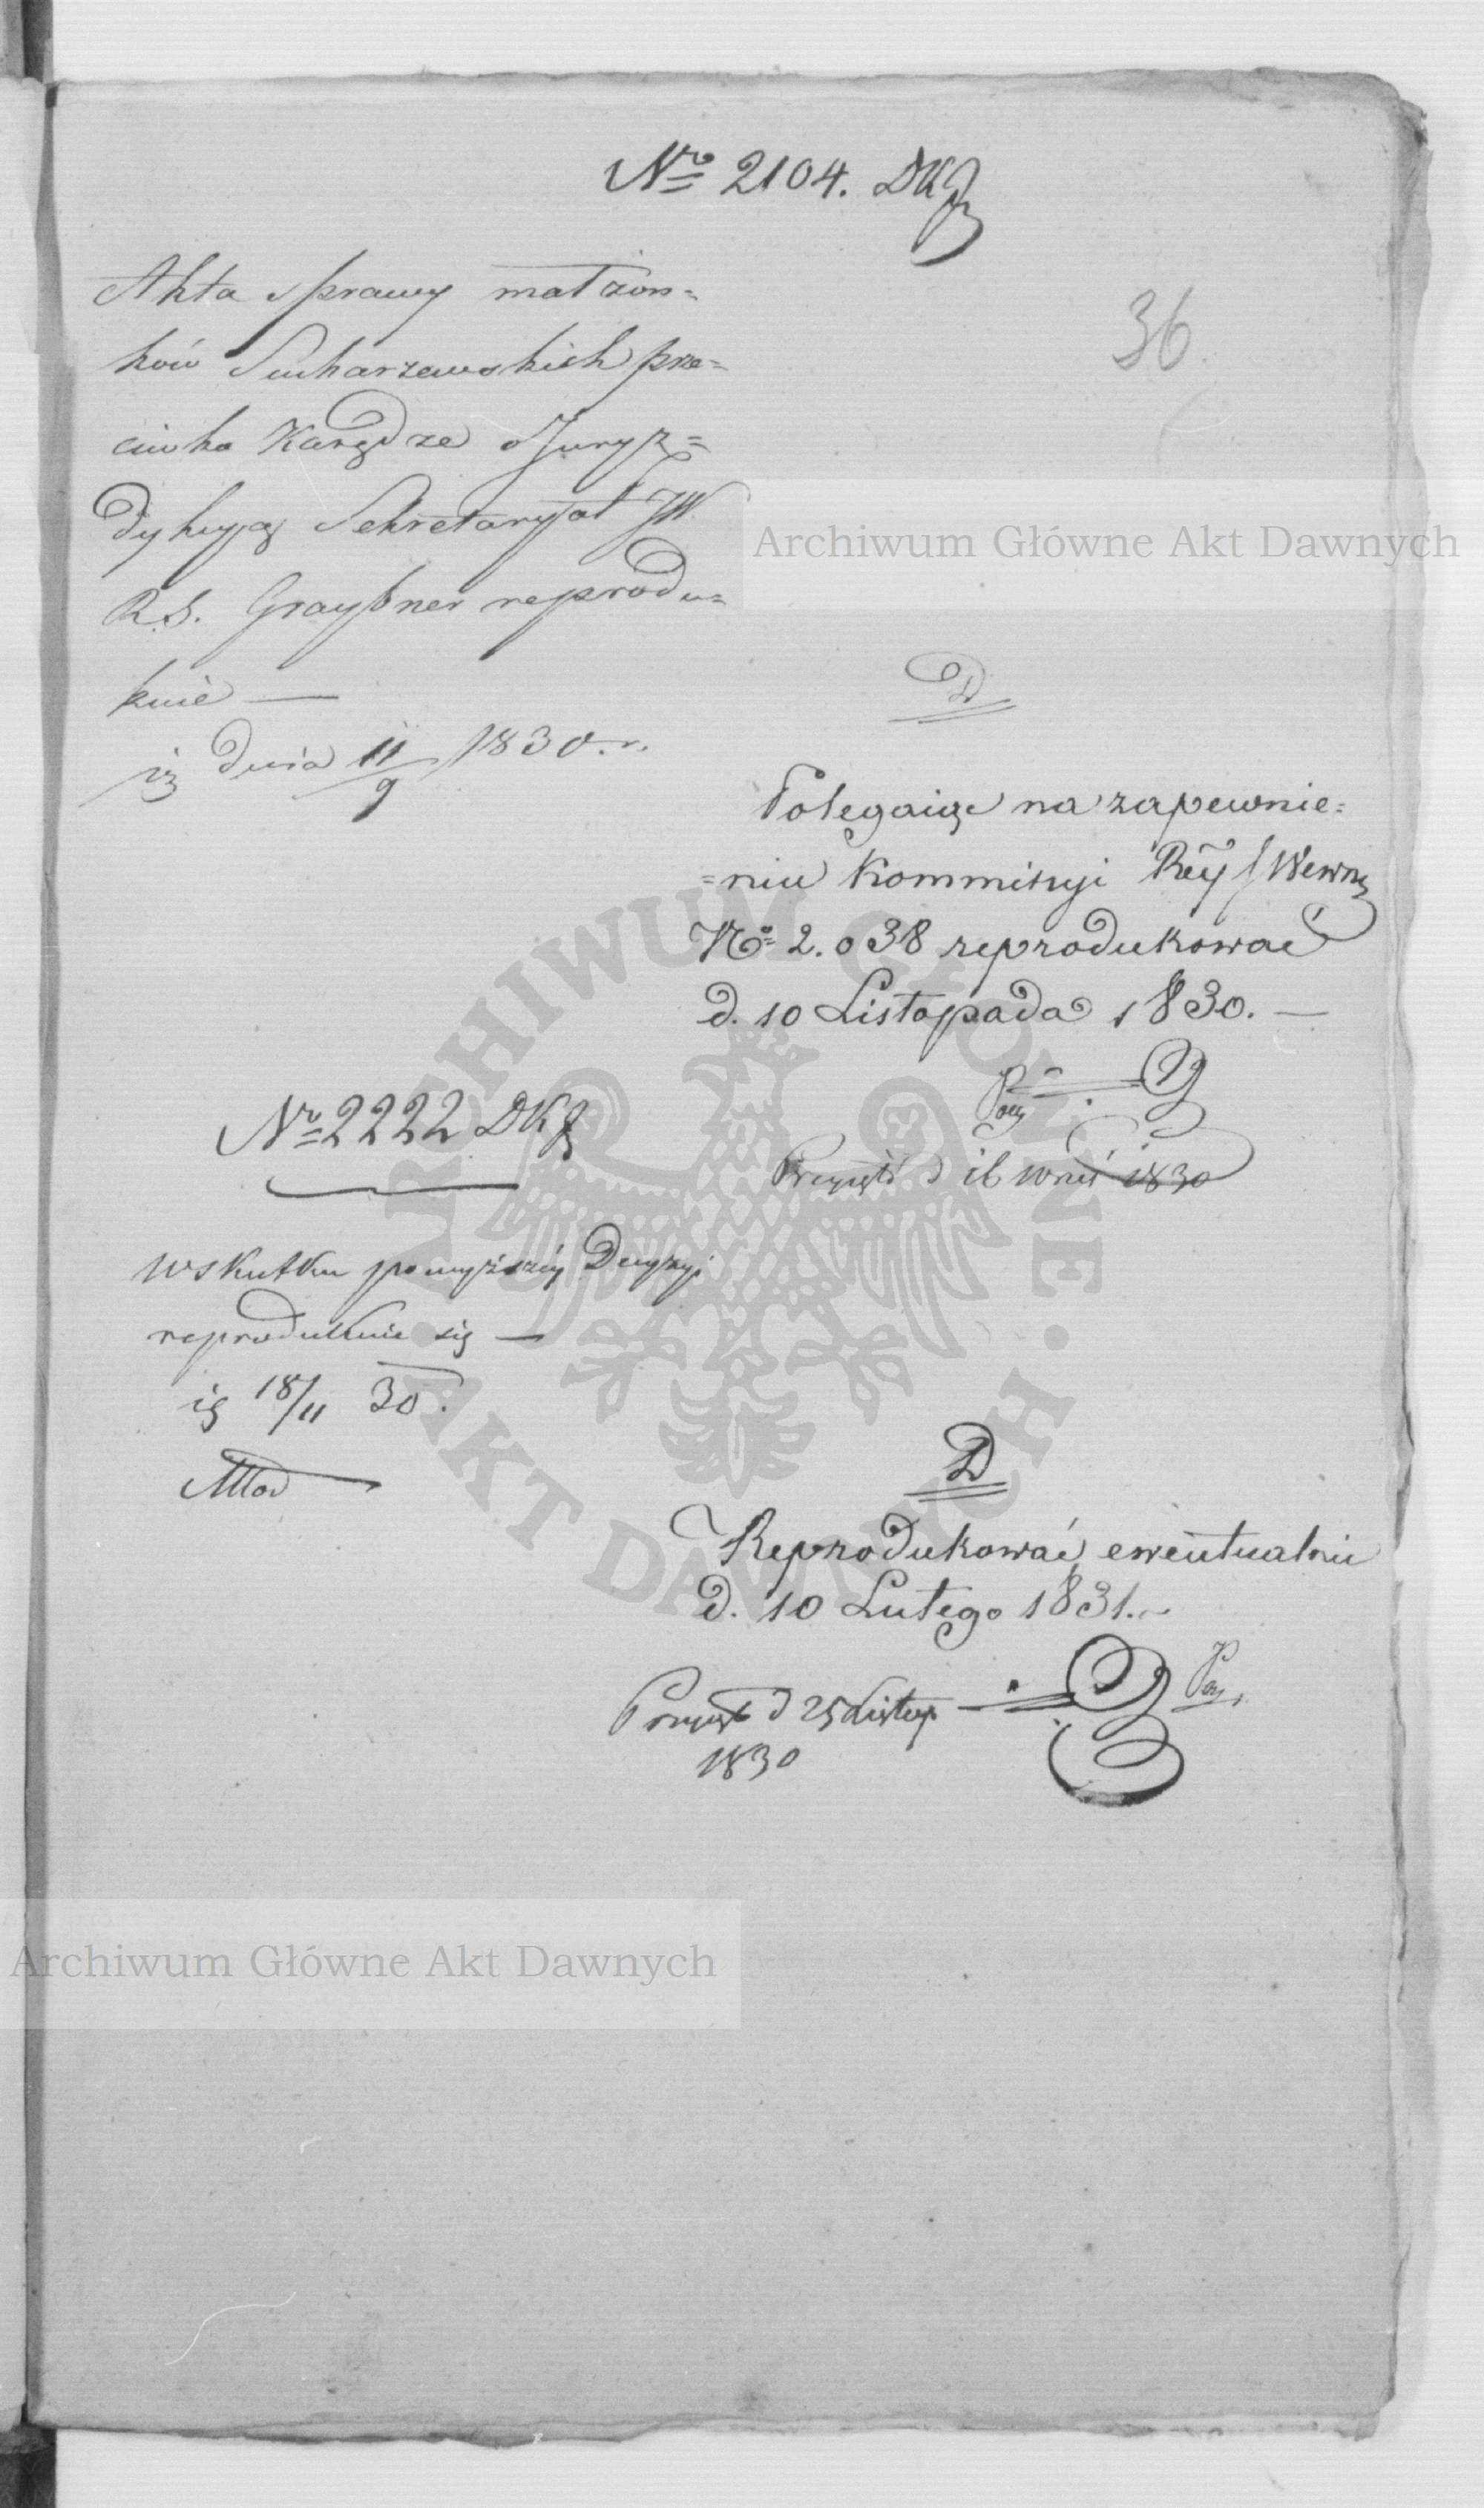 Nro 2104. DKJ
36
Akta sprawy małżon=
ków Sucharzewskich prze=
ciwko Karędze o Juryz=
dykcyą Sekretaryat JW.
R.S. Graybner reprodu=
kuie —
dnia 11/9 1830. r.
D
Polegaiąc na zapewnie=
=niu Kommissyi Rey Wewn
No 2.038 reprodukować
d. 10 Listopada 1830. —
Przyięto d 16 Wrześ 1830
Nro 2222 DKJ
W skutku powyższéy Decyzyi
reprodukuie się —
18/11 30.
D
Reprodukować ewentualnie
d. 10 Lutego 1831. —
Przyięt d 25 Listop
1830
Archiwum Główne Akt Dawnych
Archiwum Główne Akt Dawnych
ARCHIWUM GŁÓWNE · AKT DAWNYCH ·